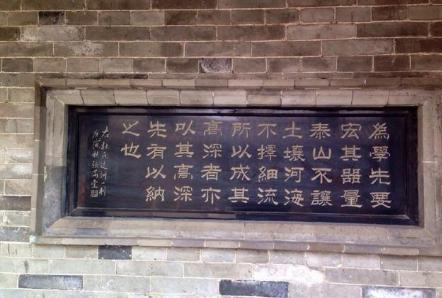 為學先要
宏其器量
泰山不讓
土壤河海
不擇細流
所以成其
高深者亦
以其高深
先有以納
之也